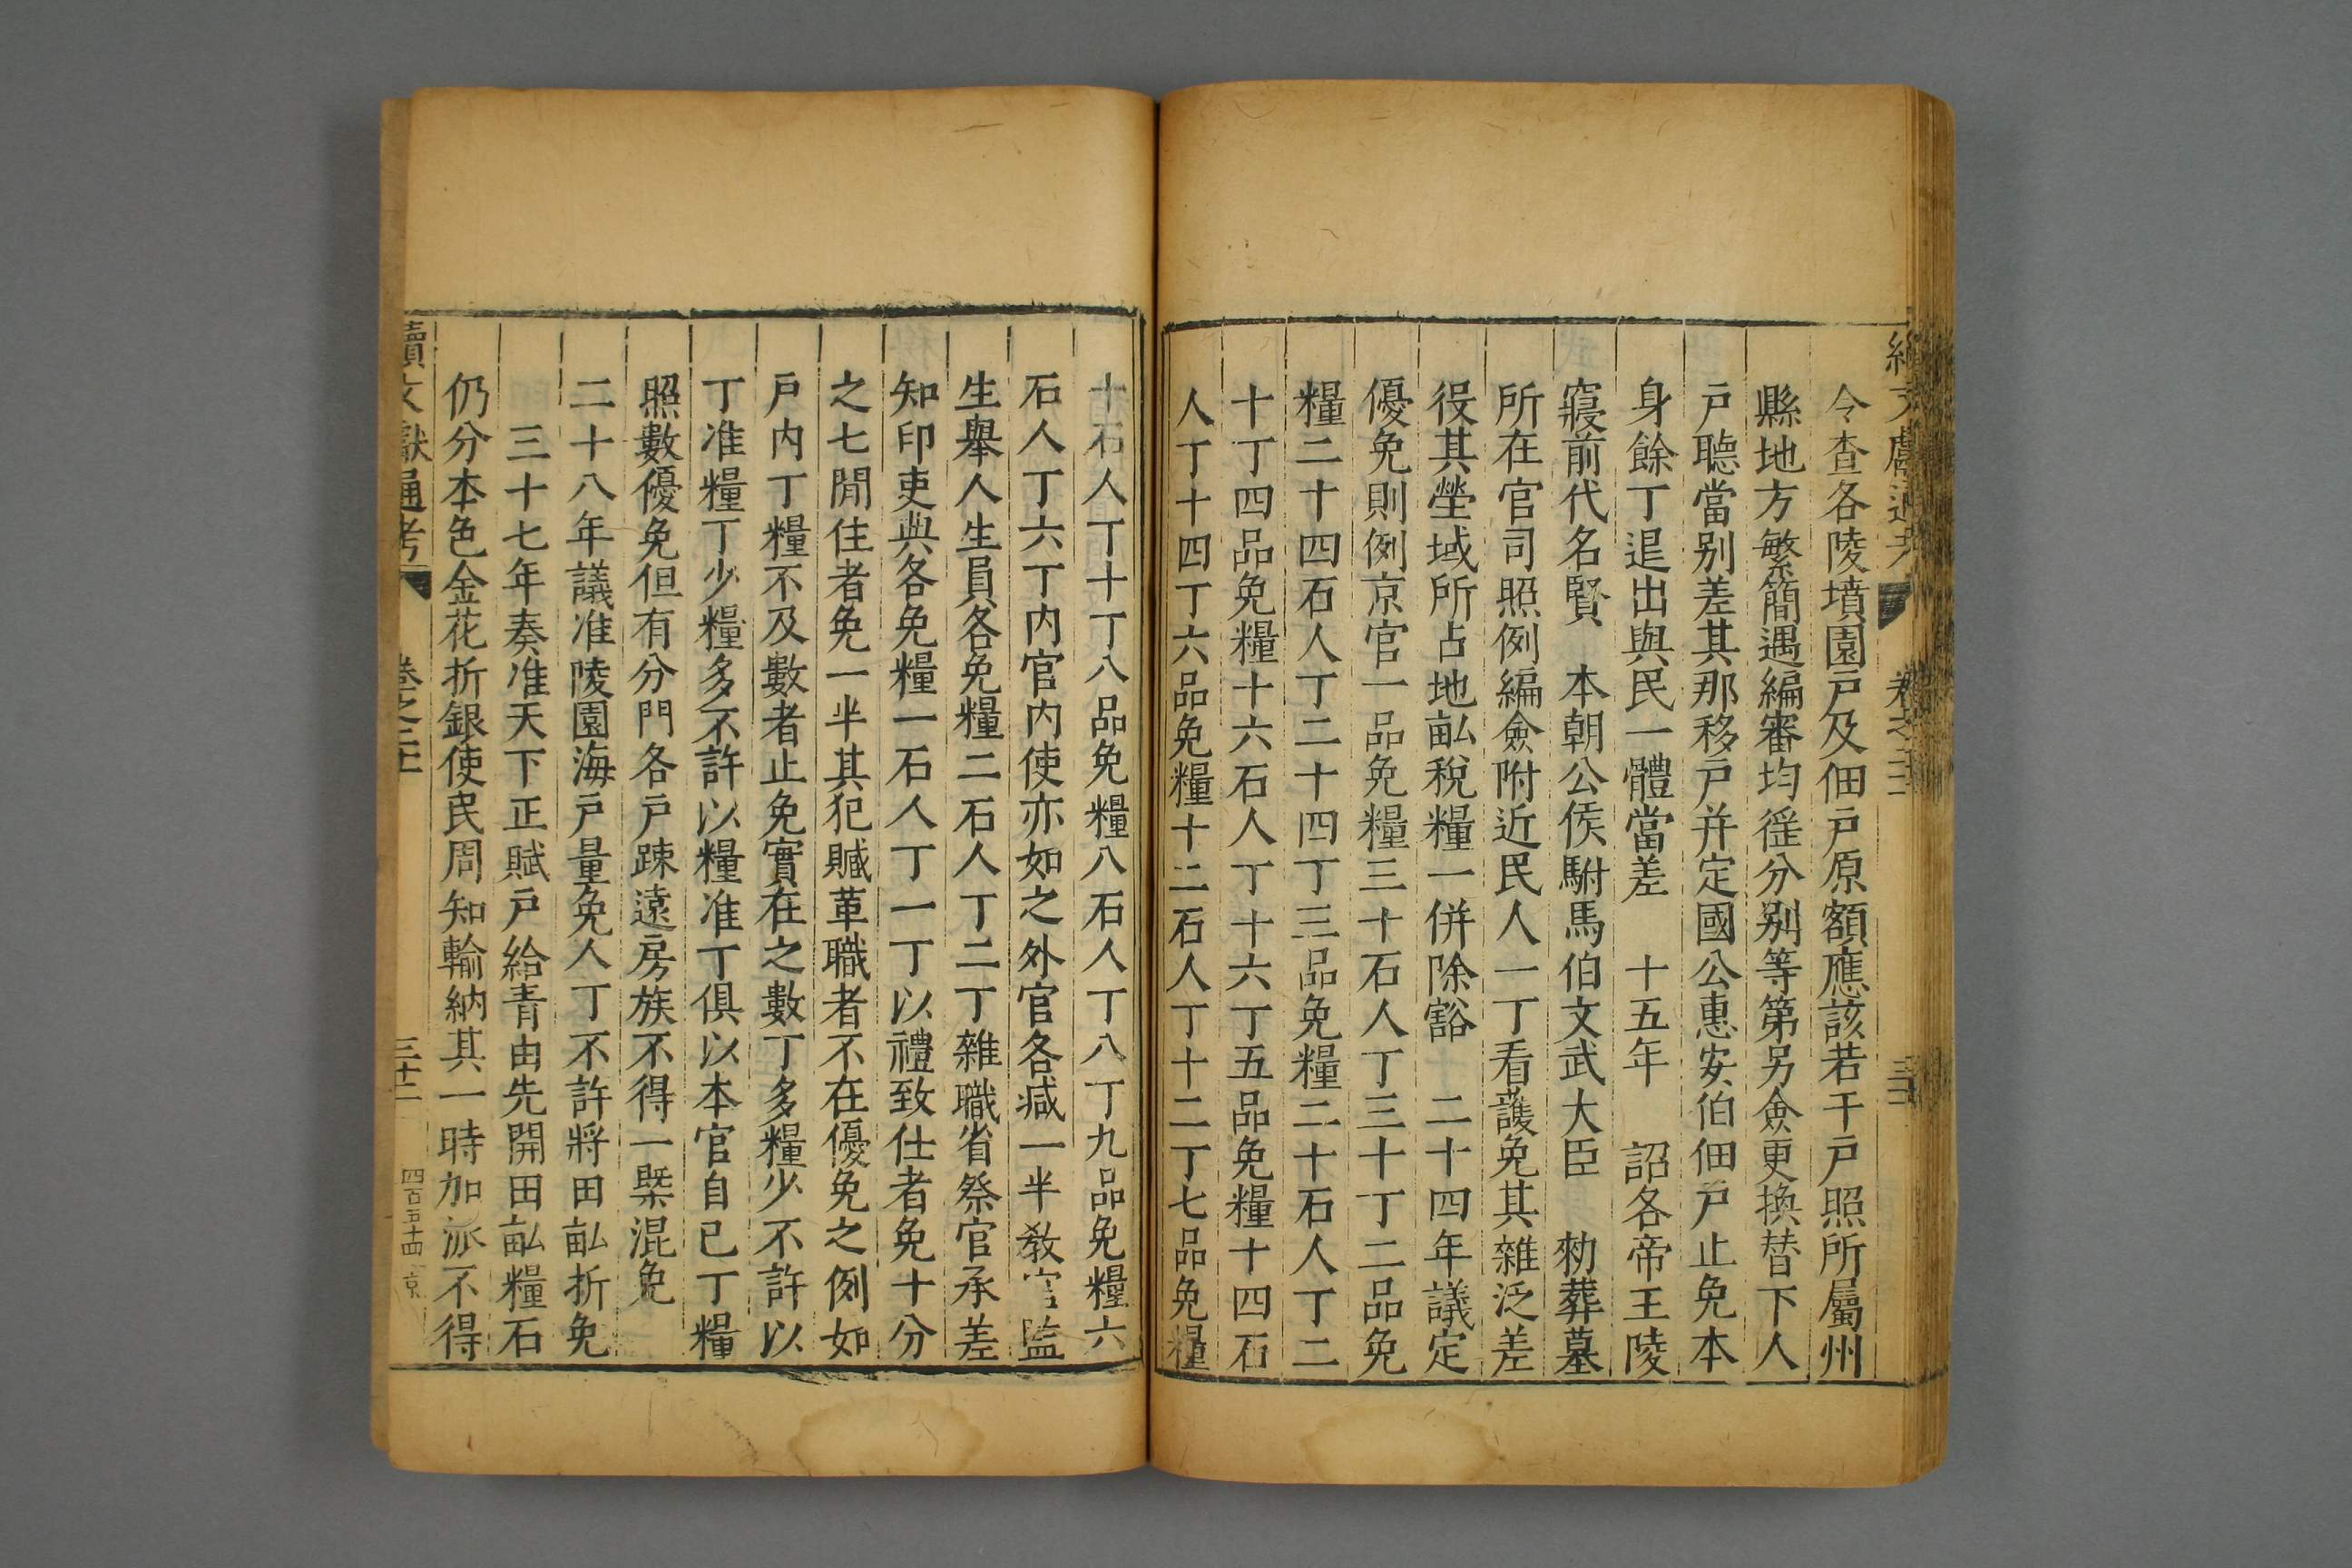 令查各陵墳園戸及佃戸原額應該若干戸照所屬州
縣地方繁簡遇編審均徭分别等第另僉更換替下人
戸聽當别差其那移戸并定國公惠安伯佃戸止免本
身餘丁退出與民一體當差　十五年　詔各帝王陵
寢前代名賢　本朝公侯駙馬伯文武大臣　勑葬墓
所在官司照例編僉附近民人一丁看護免其雜泛差
役其塋域所占地畝稅糧一併除豁　二十四年議定
優免則例京官一品免糧三十石人丁三十丁二品免
糧二十四石人丁二十四丁三品免糧二十石人丁二
十丁四品免糧十六石人丁十六丁五品免糧十四石
人丁十四丁六品免糧十二石人丁十二丁七品免糧
十石人丁十丁八品免糧八石人丁八丁九品免糧六
石人丁六丁内官内使亦如之外官各减一半教官監
生舉人生員各免糧二石人丁二丁雜職省祭官承差
知印吏典各免糧一石人丁一丁以禮致仕者免十分
之七閒住者免一半其犯贓革職者不在優免之例如
戸内丁糧不及數者止免實在之數丁多糧少不許以
丁准糧丁少糧多不許以糧准丁俱以本官自己丁糧
照數優免但有分門各戸踈遠房族不得一槩混免
二十八年議准陵園海戸量免人丁不許將田畝折免
三十七年奏准天下正賦戸給青由先開田畝糧石
仍分本色金花折銀使民周知輸納其一時加派不得
續文獻通考
四百五十四 京